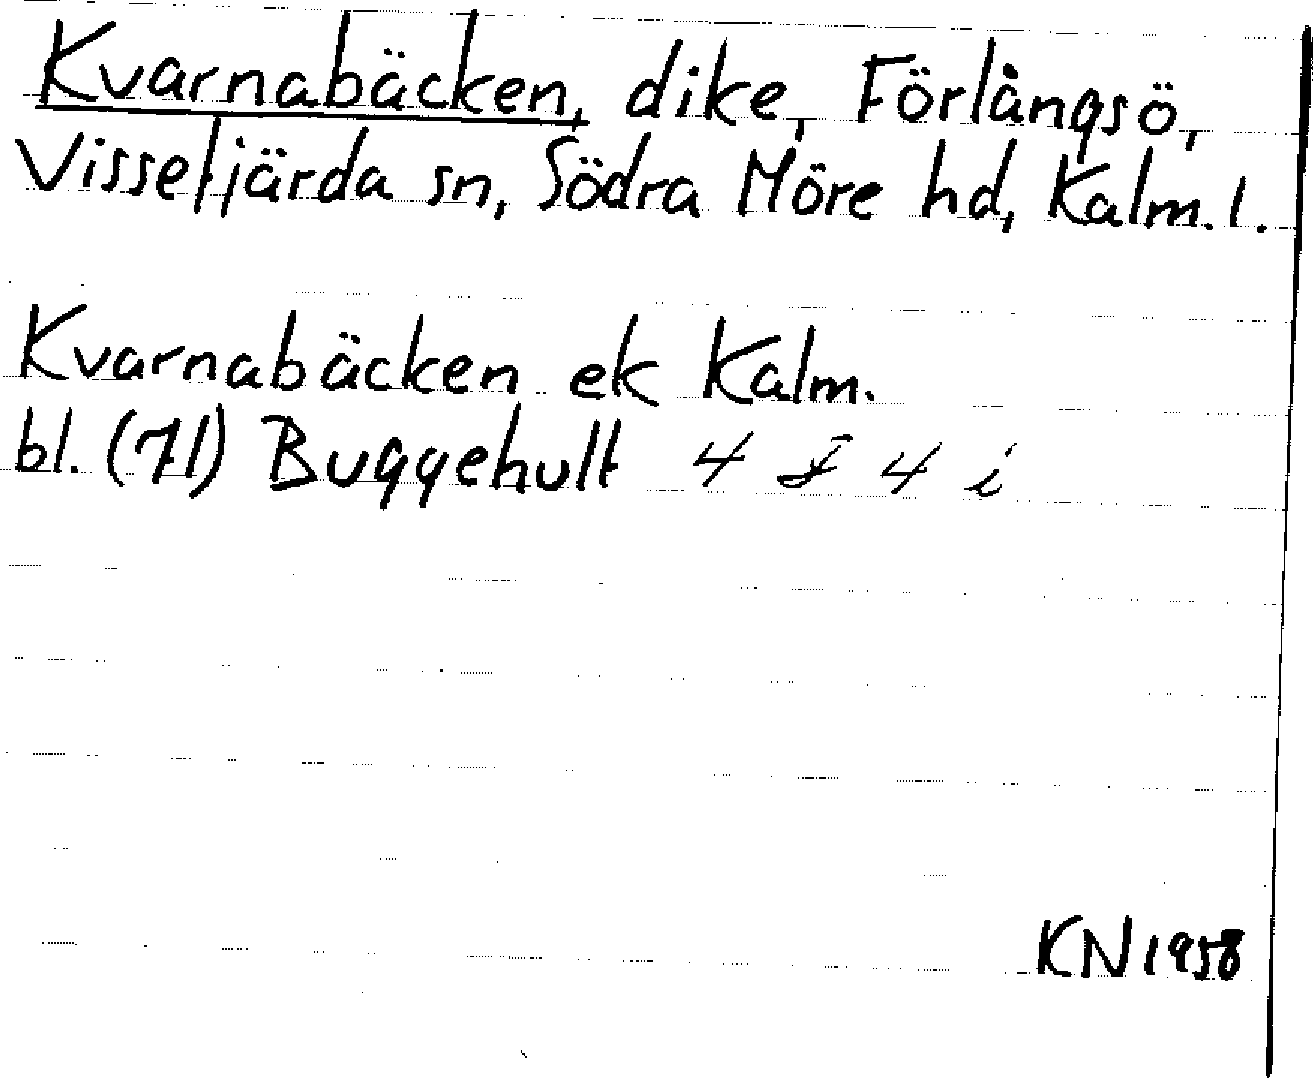 Kvarnabäcken, dike, Förlångsö,
Vissefjärda sn, Södra Möre hd, Kalm. l.
Kvarnabäcken ek Kalm.
bl. (71) Buggehult 4 f 4 i
KN 1958